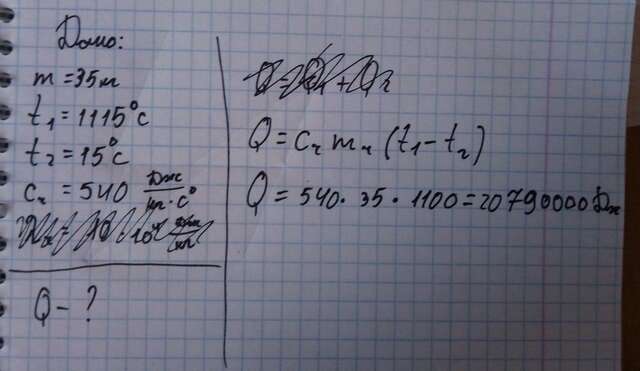 Дано:
m = 35кг
t₁ = 1115°С
t₂ = 15°С
Cч = 540 Дж/кг·С°
Q - ?
Q = Cч mч (t₁ - t₂)
Q = 540 · 35 · 1100 = 20790000 Дж